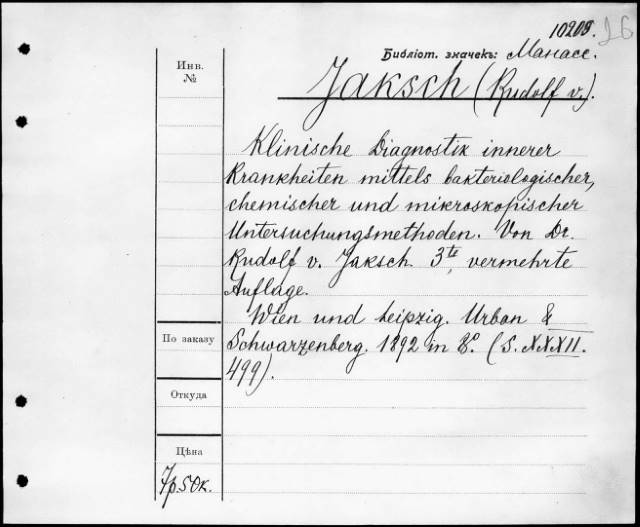 10208. 26
Библіот. значекъ: Манасс.
Инв.
№
Jaksch (Rudolf v.).
Klinische Diagnostik innerer
Krankheiten mittels bakteriologischer,
chemischer und mikroskopischer
Untersuchungsmethoden. Von Dr.
Rudolf v. Jaksch. 3te, vermehrte
Auflage.
Wien und Leipzig. Urban &
Schwarzenberg. 1892 in 8°. (S. XXXII.
499).
По заказу
Откуда
Цѣна
7р.50к.